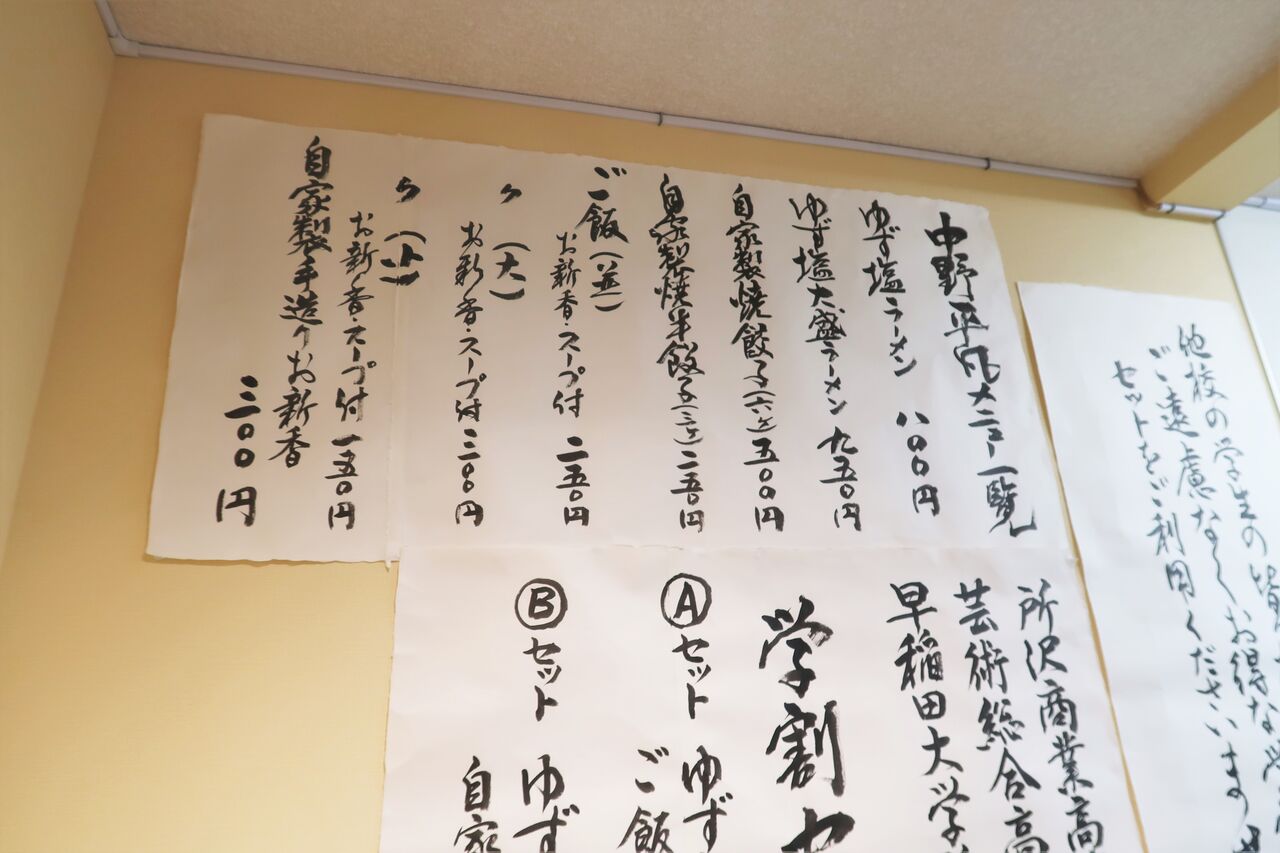 中野平凡メニュー一覧
ゆず塩ラーメン 八〇〇円
ゆず塩大盛ラーメン 九五〇円
自家製焼餃子(六ヶ)五〇〇円
自家製焼半餃子(三ヶ)二五〇円
ご飯(並)
お新香・スープ付 二五〇円
〃(大)
お新香・スープ付 三〇〇円
〃(小)
お新香・スープ付 一五〇円
自家製手造りお新香
三〇〇円
他校の学生の皆
ご遠慮なくお得な学
セットをご利用くださいま
所沢商業高
芸術総合高
早稲田大学
学割セ
Ⓐセット ゆず
ご飯
Ⓑセット ゆず
自家